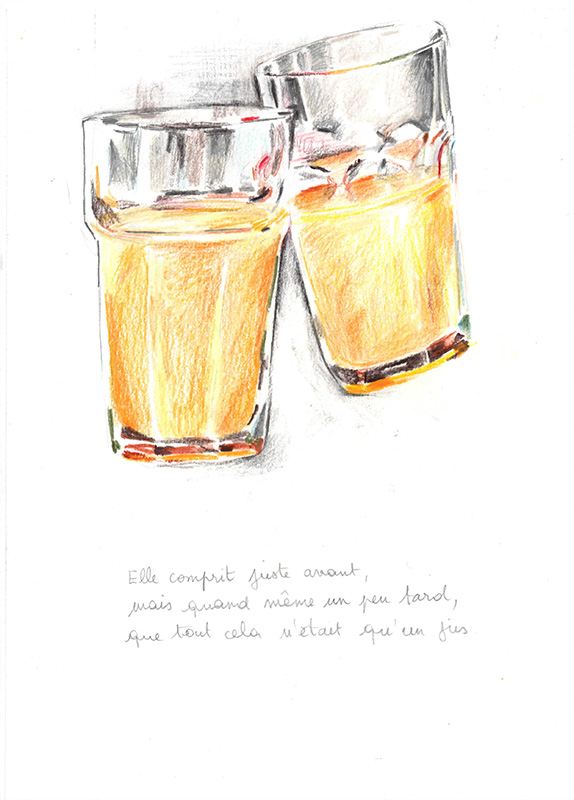 Elle comprit juste avant,
mais quand même un peu tard,
que tout cela n'était qu'un jus